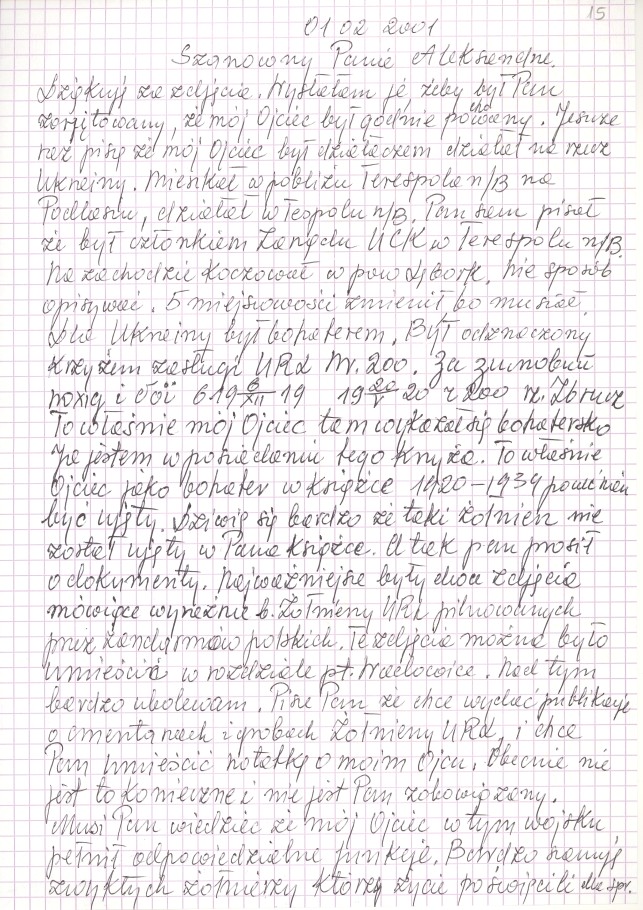 15
01 02 2001
Szanowny Panie Aleksandrze.
Dziękuję za zdjęcia. Wysłałam je, żeby był Pan
zorjętowany, że mój Ojciec był godnie pochowany. Jeszcze
raz piszę że mój Ojciec był działaczem działał na rzecz
Ukrainy. Mieszkał w pobliżu Terespola n/B na
Podlasiu, działał w Tespolu n/B. Pan sam pisał
że był członkiem Zarządu UCK w Terespolu n/B.
Na zachodzie koczował w pow Lębork, nie sposób
opisywać. 5 miejscowości zmienił bo musiał.
Dla Ukrainy był bohaterem. Był odznaczony
Krzyżem zasługi URL Nr. 200. Za зимовий
похід і бої 6 19 6/XII 19 19 20/V 20 r 200 rz. Zbrucz
To właśnie mój Ojciec tam wykazał się bohatersko
Ja jestem w posiadaniu tego Knyża. To właśnie
Ojciec jako bohater w książce 1920-1939 powinien
być ujęty. Dziwię się bardzo że taki żołnierz nie
został ujęty w Pana Książce. A tak pan prosił
o dokumenty. Najważniejsze były dwa zdjęcia
mówiące wyraźnie b. Żołnierzy URL pilnowanych
przez żandarmów polskich. Te zdjęcia można było
umieścić w rozdziale pt. Wadowice. Nad tym
bardzo ubolewam. Pisze Pan że chce wydać publikację
o cmentarzach i grobach Żołnierzy URL, i chce
Pan umieścić notatkę o moim Ojcu. Obecnie nie
jest to konieczne i nie jest Pan zobowiązany.
Musi Pan wiedzieć że mój Ojciec w tym wojsku
pełnił odpowiedzialne funkcje. Bardzo szanuję
zwykłych żołnierzy którzy życie poświęcili dla spr.